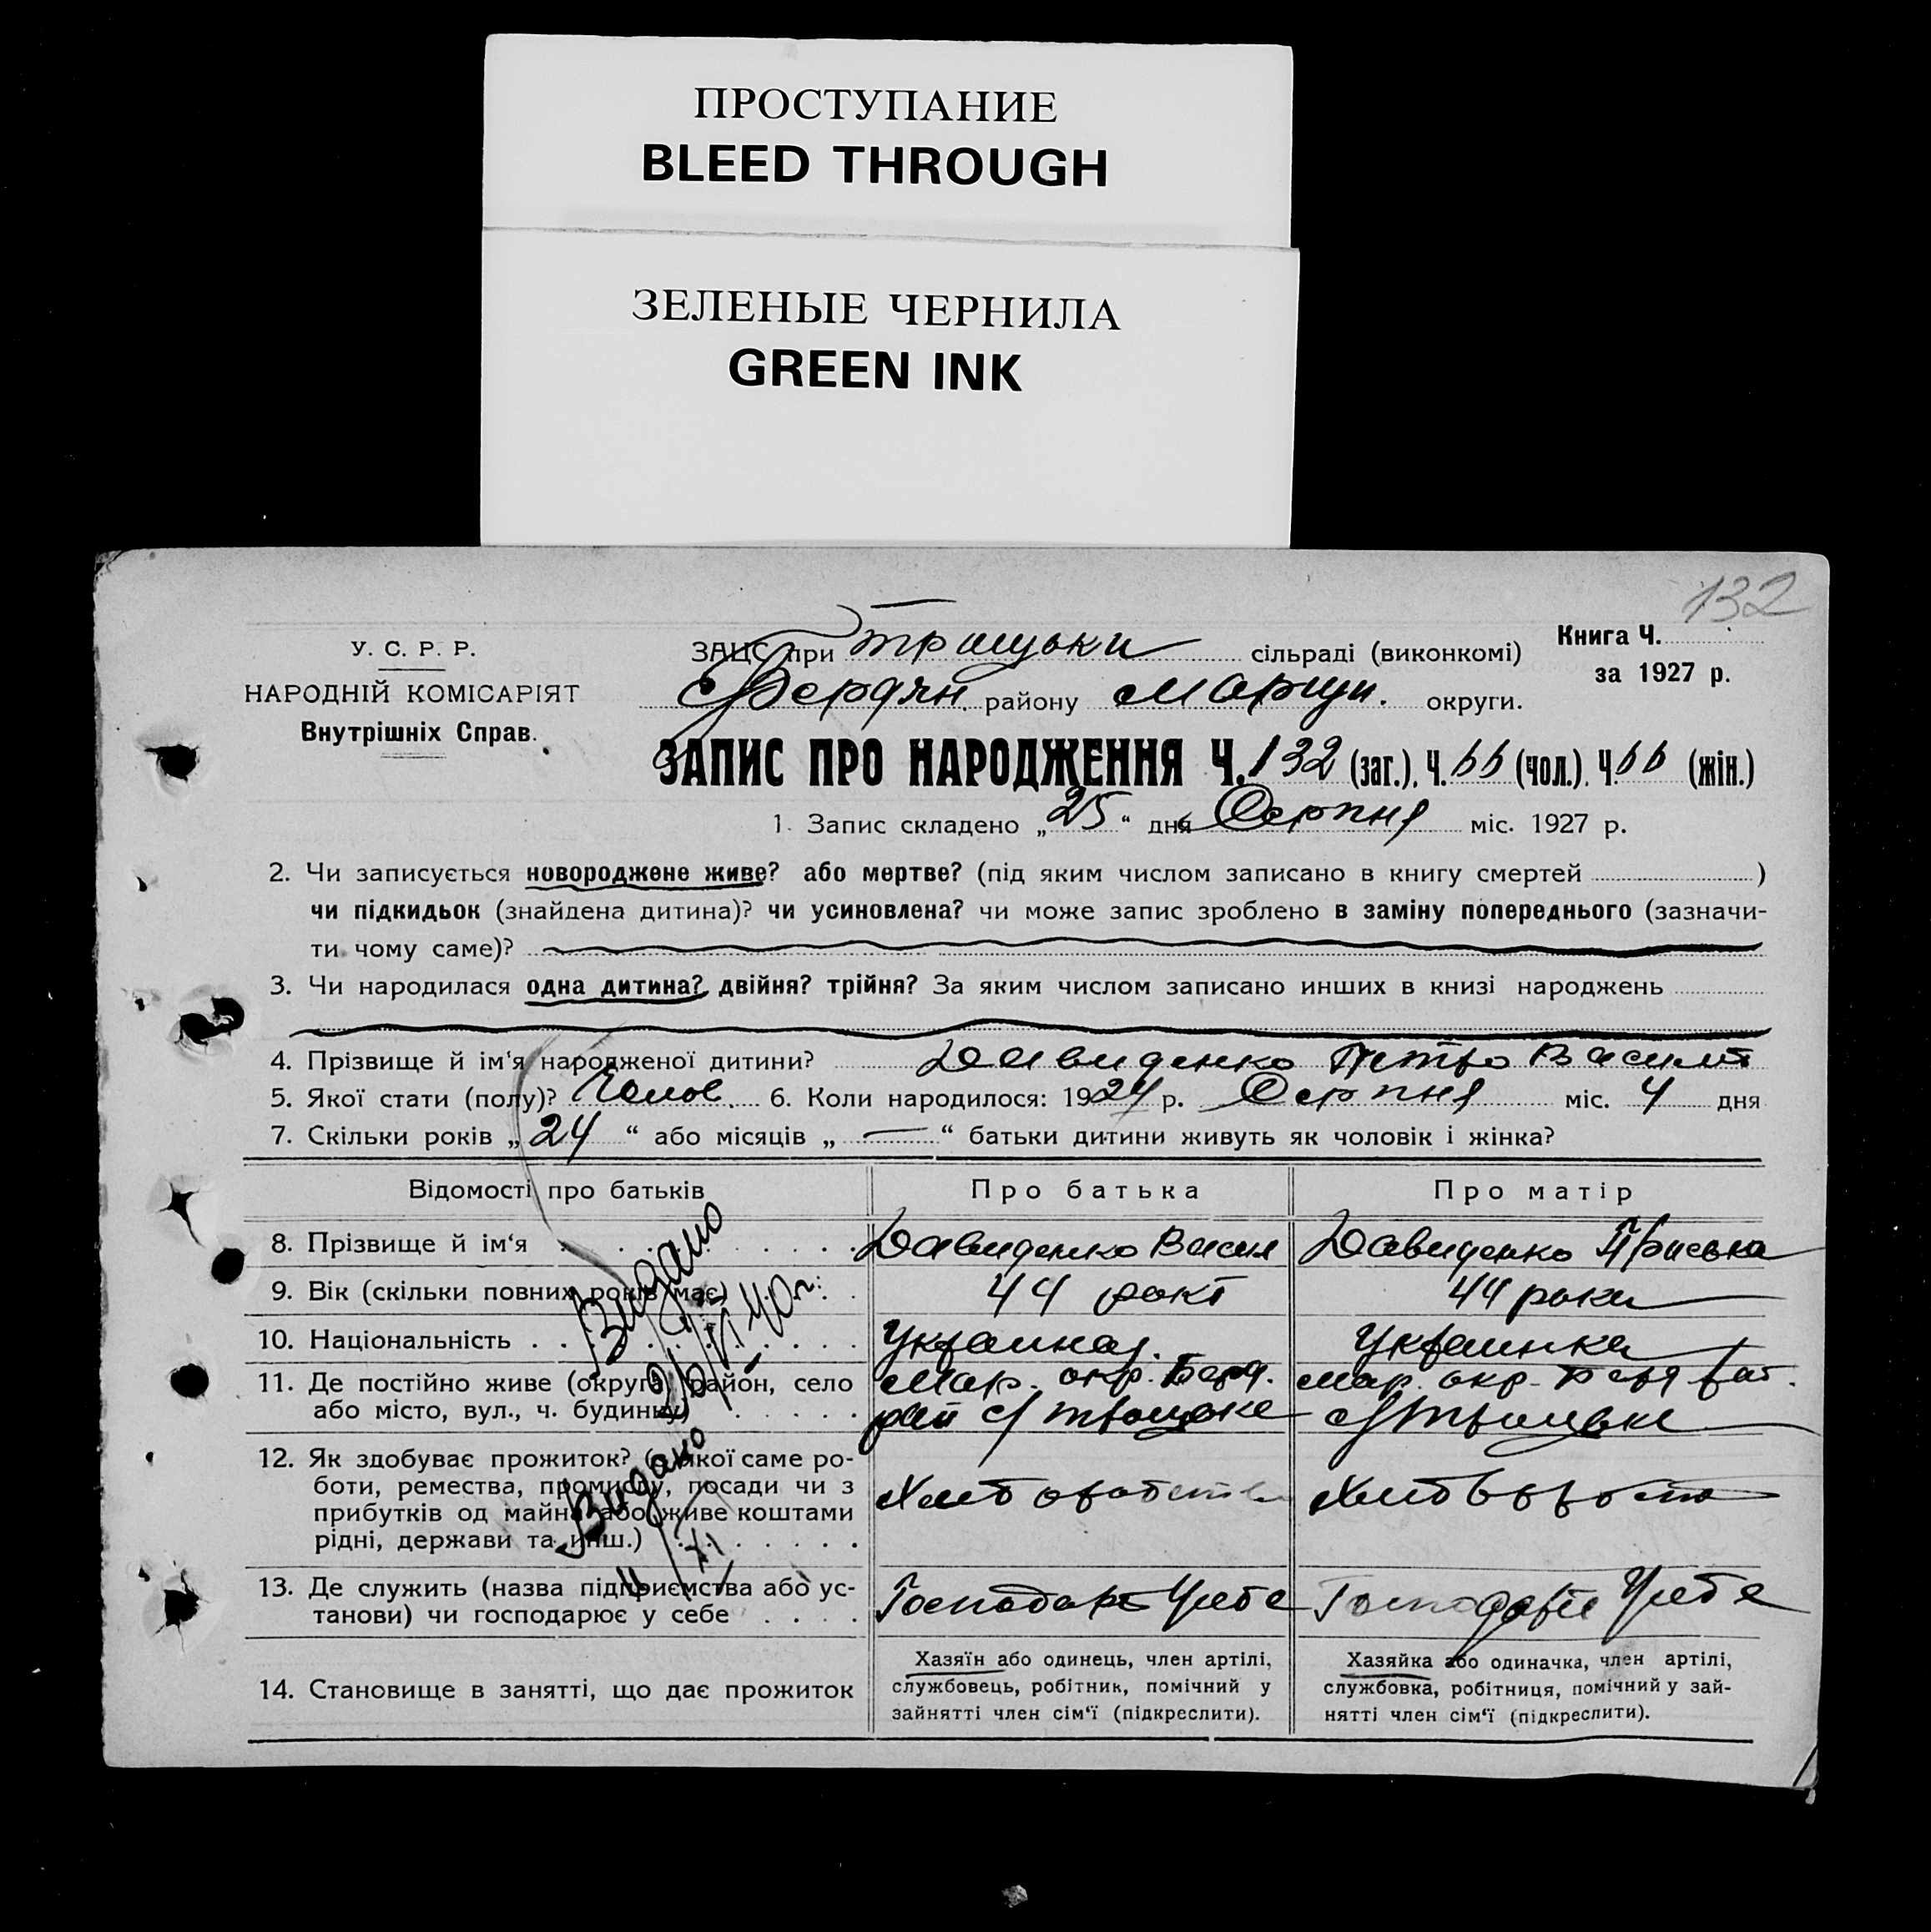 ПРОСТУПАНИЕ
BLEED THROUGH
ЗЕЛЕНЫЕ ЧЕРНИЛА
GREEN INK
132
У. С. Р. Р.
НАРОДНІЙ КОМІСАРІЯТ
Внутрішніх Справ.
ЗАЦС при Троицьки сільраді (виконкомі)
Бердян. району Маріуп. округи.
Книга Ч.
за 1927 р.
ЗАПИС ПРО НАРОДЖЕННЯ Ч. 132 (заг.), Ч. 66 (чол.), Ч. 66 (жін.)
1. Запис складено „25“ дня Серпня міс. 1927 р.
2. Чи записується новороджене живе? або мертве? (під яким числом записано в книгу смертей )
чи підкидьок (знайдена дитина)? чи усиновлена? чи може запис зроблено в заміну попереднього (зазначи-
ти чому саме)?
3. Чи народилася одна дитина? двійня? трійня? За яким числом записано инших в книзі народжень
4. Прізвище й ім‘я народженої дитини? Давиденко Петро Василь
5. Якої стати (полу)? Чолов. 6. Коли народилося: 1924 р. Серпня міс. 4 дня
7. Скільки років „24“ або місяців „—“ батьки дитини живуть як чоловік і жінка?
Відомості про батьків Про батька Про матір
8. Прізвище й ім‘я Давиденко Васил Давиденко Приська
9. Вік (скільки повних років має) 44 рокі 44 роки
10. Національність Украинец. Украинка
11. Де постійно живе (округа, район, село
або місто, вул., ч. будинку)
Мар. окр. Берд.
рай с/Троицьке
Мар. окр. Берд рай.
с/Троицьке
12. Як здобуває прожиток? (з якої саме ро-
боти, ремества, промислу, посади чи з
прибутків од майна або живе коштами
рідні, держави та инш.)
Хлиборобств
13. Де служить (назва підприємства або ус-
танови) чи господарює у себе
Господаре Усебе
Господаре Усебе
14. Становище в занятті, що дає прожиток
Хазяїн або одинець, член артілі,
службовець, робітник, помічний у
зайнятті член сім‘ї (підкреслити).
Хазяйка або одиначка, член артілі,
службовка, робітниця, помічний у зай-
нятті член сім‘ї (підкреслити).
Видано
40 г.
Видано